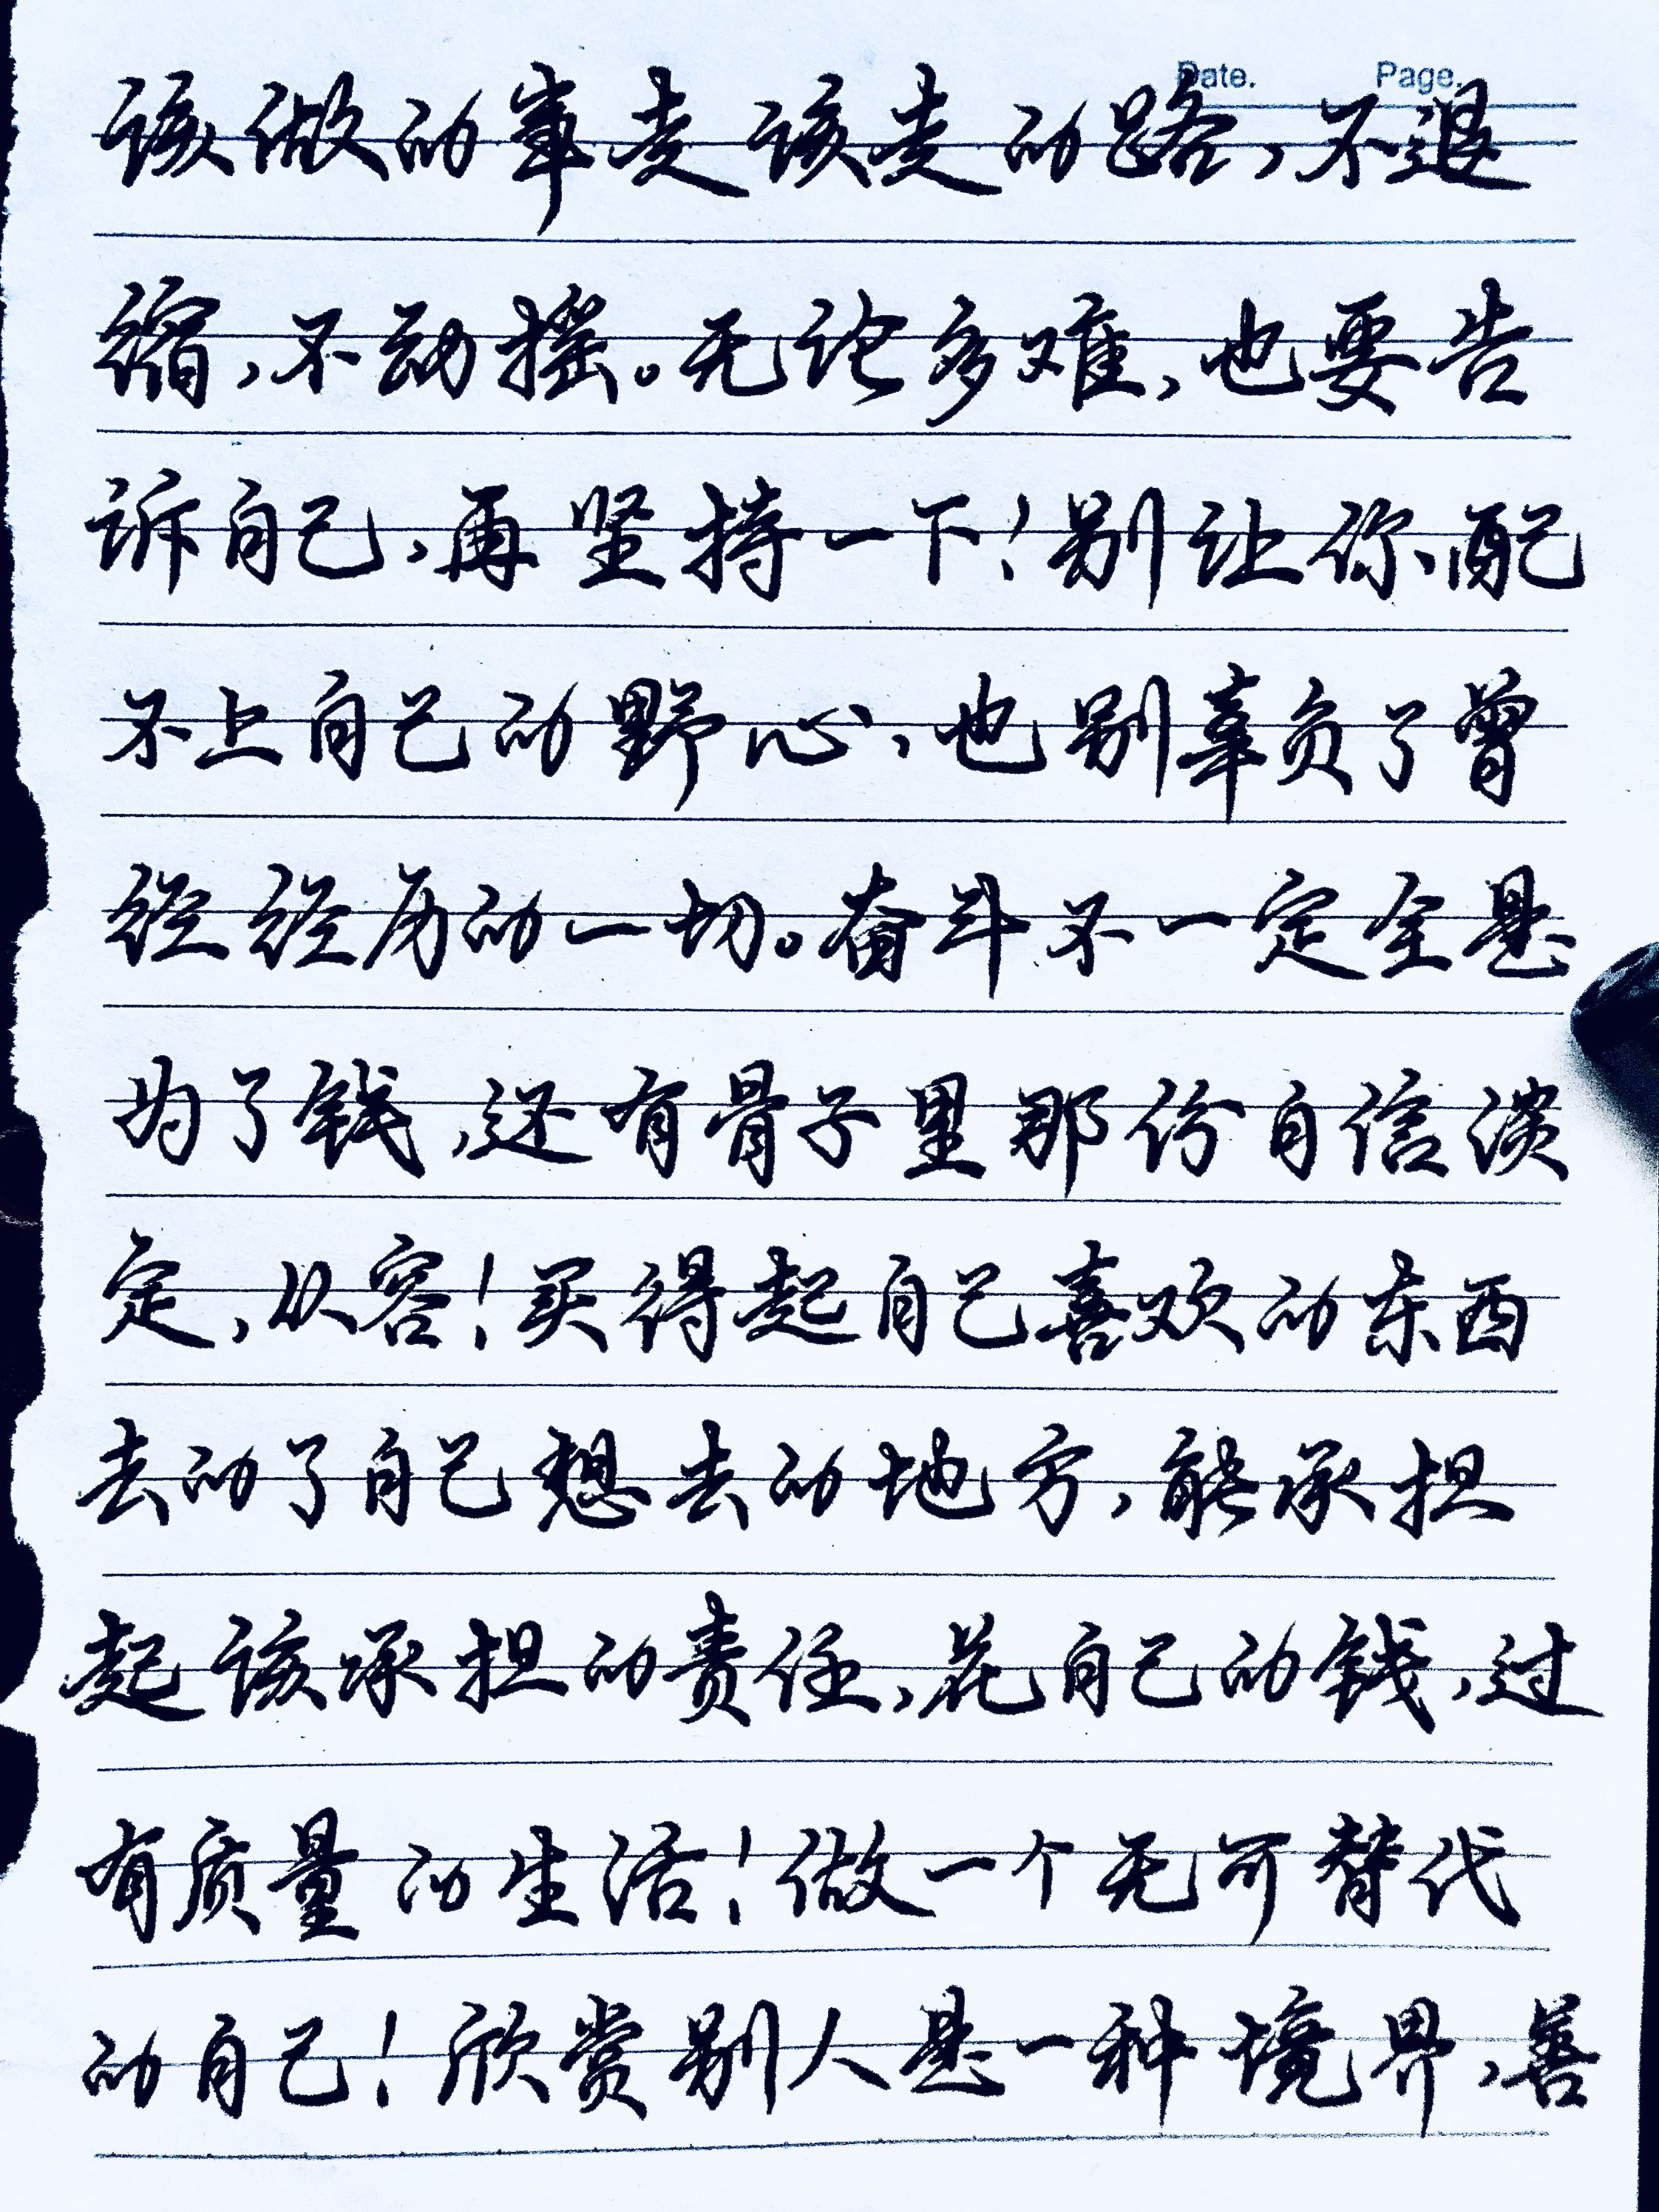 Date. Page.
该做的事走该走的路,不退
缩,不动摇。无论多难,也要告
诉自己,再坚持一下!别让你配
不上自己的野心,也别辜负了曾
经经历的一切。奋斗不一定全是
为了钱,还有骨子里那份自信淡
定,从容!买得起自己喜欢的东西
去的了自己想去的地方,能承担
起该承担的责任,花自己的钱,过
有质量的生活!做一个无可替代
的自己!欣赏别人是一种境界,善